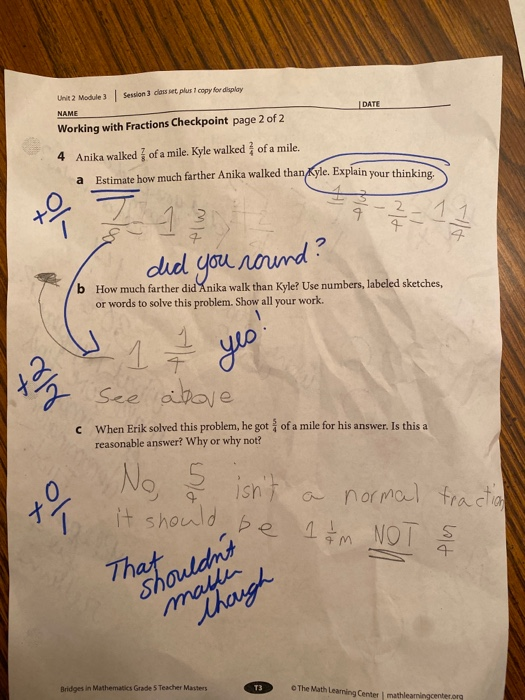 Unit 2 Module 3 | Session 3 class set, plus 1 copy for display
NAME | DATE
Working with Fractions Checkpoint page 2 of 2
4 Anika walked 7/8 of a mile. Kyle walked 2/4 of a mile.
a Estimate how much farther Anika walked than Kyle. Explain your thinking.
+0/1
7/8 = 1 3/4
1 3/4 - 2/4 = 1 1/4
did you round?
b How much farther did Anika walk than Kyle? Use numbers, labeled sketches,
or words to solve this problem. Show all your work.
1 1/4 yes!
+2/2
See above
c When Erik solved this problem, he got 5/4 of a mile for his answer. Is this a
reasonable answer? Why or why not?
+0/1
No, 5/4 isn't a normal fraction
it should be 1 1/4 m NOT 5/4
That
shouldn't
matter
though
Bridges in Mathematics Grade 5 Teacher Masters T3 © The Math Learning Center | mathlearningcenter.org